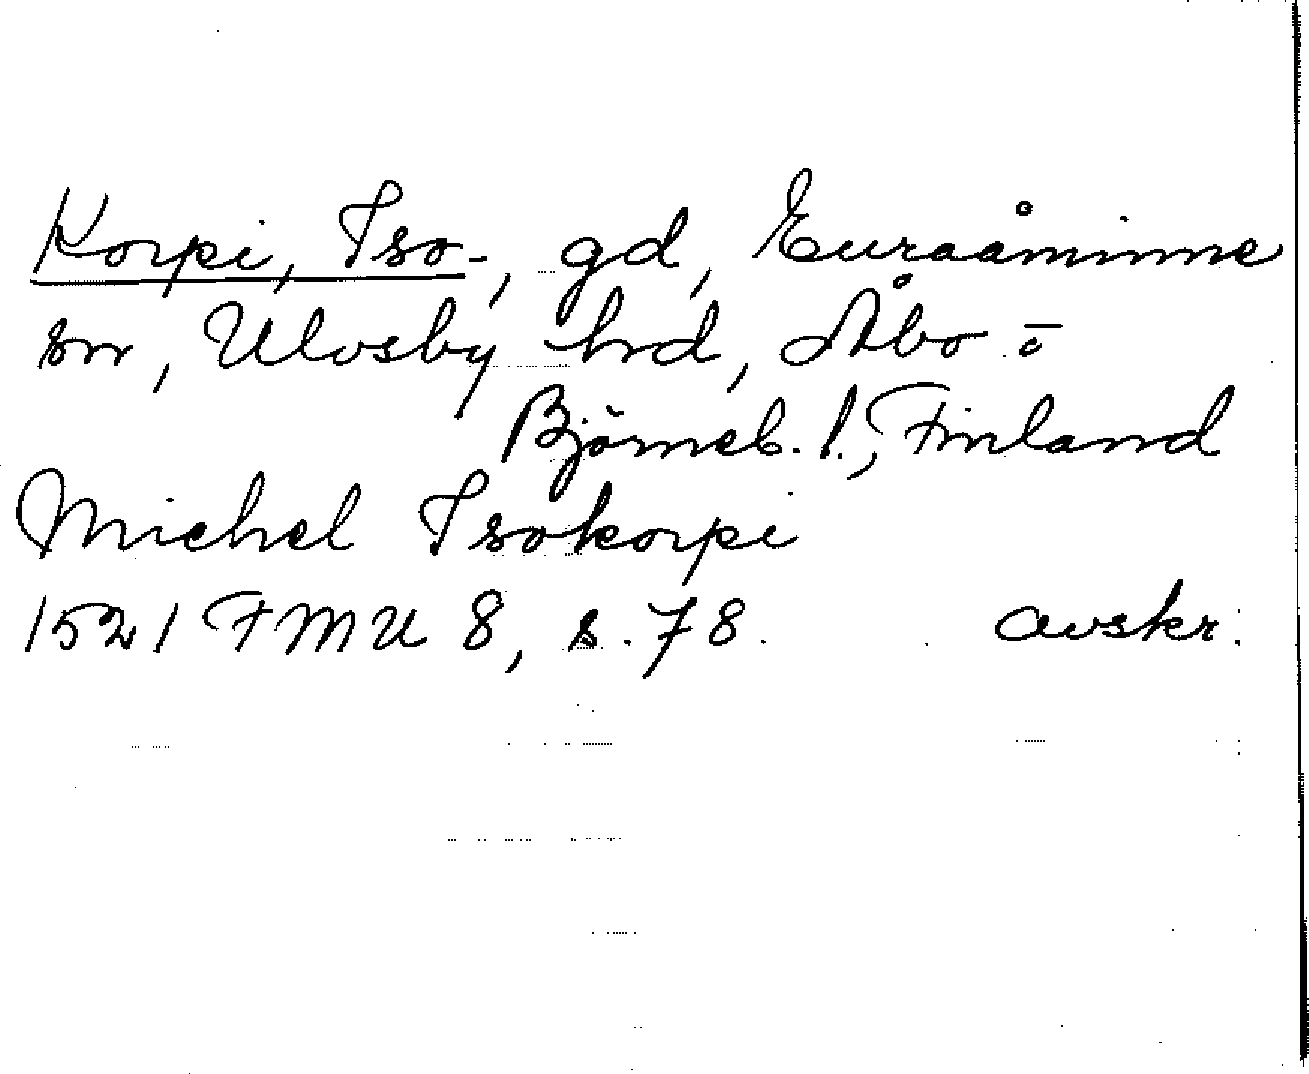 Korpi, Iso-, gd, Euraåminne
sn, Ulvsby hrd, Åbo o
Björneb. l., Finland
Michel Isokorpi
1521 FMU 8, s. 78. avskr.